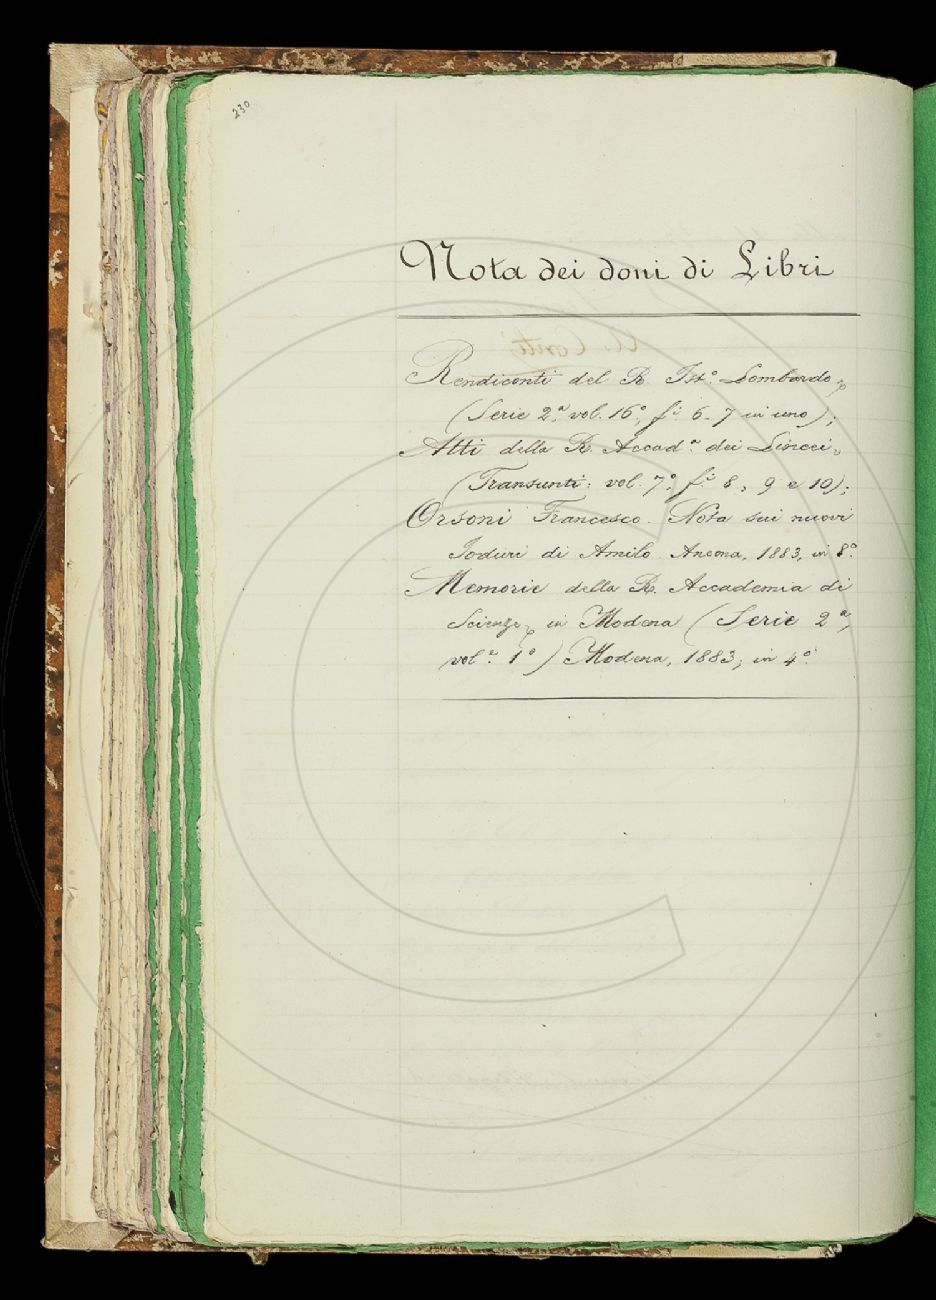 230
Nota dei doni di Libri
Rendiconti del R. Ist.º Lombardo,
(Serie 2.ª, vol. 16º, f.i 6-7 in uno);
Atti della R. Accad.ª dei Lincei,
(Transunti: vol. 7º, f.i 8, 9 e 10);
Orsoni Francesco. Nota sui nuovi
Joduri di Amilo. Ancona, 1883, in 8º.
Memorie della R. Accademia di
Scienze, in Modena (Serie 2ª,
vol.e 1º) Modena, 1883, in 4º.